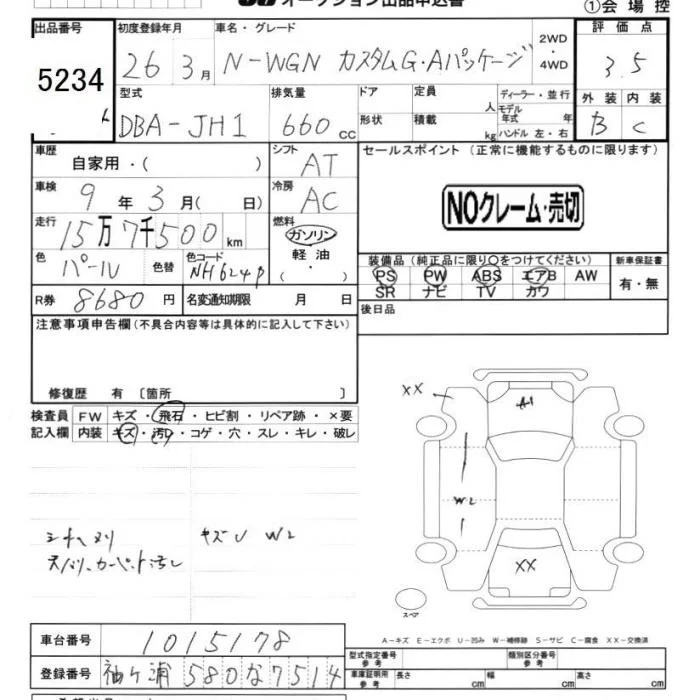 オークション出品申込書 ①会場控
出品番号 初度登録年月 車名・グレード 2WD・4WD 評価点
5234 26 3月 N-WGN カスタムG・Aパッケージ 3.5
型式 排気量 ドア 定員 人 ディーラー・並行 外装 内装
DBA-JH1 660cc 形状 積載 kg モデル年式 年 ハンドル 左・右 B C
車歴 自家用・( ) シフト AT セールスポイント (正常に機能するものに限ります)
車検 9年3月( 日) 冷房 AC
NOクレーム・売切
走行 15万7千500km 燃料 ガソリン
軽油
( ・ )
色 パール 色替 色コード NH624P
装備品 (純正品に限り○をつけてください) 新車保証書
PS PW ABS エアB AW 有・無
SR ナビ TV カワ
R券 8680円 名変通知期限 月 日
後日品
注意事項申告欄 (不具合内容等は具体的に記入して下さい)
修復歴 有 〔箇所 〕
検査員 FW キズ・飛石・ヒビ割・リペア跡・×要
記入欄 内装 キズ・汚レ・コゲ・穴・スレ・キレ・破レ
XX A1
W2
XX
キズ U W2
カーペット汚レ
スペア
A-キズ E-エクボ U-凹み W-補修跡 S-サビ C-腐食 XX-交換済
車台番号 1015178
型式指定番号 参考 類別区分番号 参考
登録番号 袖ヶ浦 580 な 7514
車庫証明用 参考 長さ cm 幅 cm 高さ cm